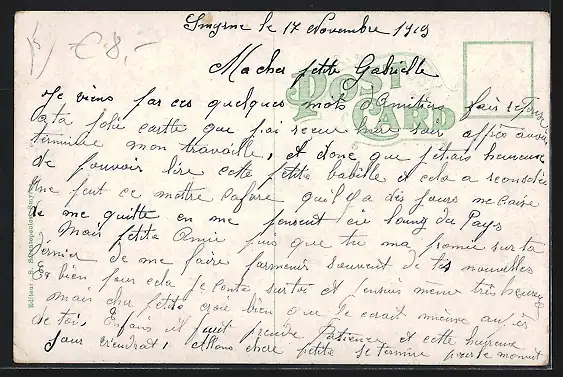 € 8,-
Smyrne le 17 Novembre 1919
Ma cher petite Gabrielle
POST
CARD
Je viens par ces quelques mots d'Amitiers fair réponse
a ta jolie cartte que j'ai recue hier soir après avoir
terminae mon travaille, et donc que j'etais heureuse
de pouvoir lire cette petite babille et cela a
une peut ce mottre cafare qu'il y a dès jours ne
de me quitte en me pensent ci loung du Pays
Mais petite Amie puis que tu ma promie sur ta
dernier de me faire parmenir souvent de tes nouvelles
Eh bien pour cela je conte sur toi et j'ensuis meme très heureuse
mais cher petite croie bien que Je serait mieux auprès
de toi. Enfains il faut prendre Patience et cette heureux
jour viendrat. Allons chere petite Je termine pour le moment
Editeur